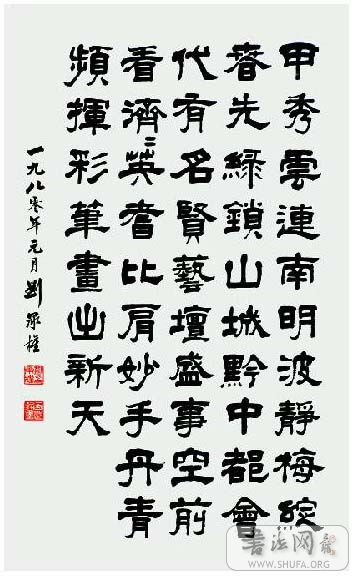 甲秀雲連南明波靜梅綻
春先綠鎖山城黔中都會
代有名賢藝壇盛事空前
看濟〻英耆比肩妙手丹青
頻揮彩筆畫出新天
一九八零年元月劉
書法网
WWW.SHUFA.ORG